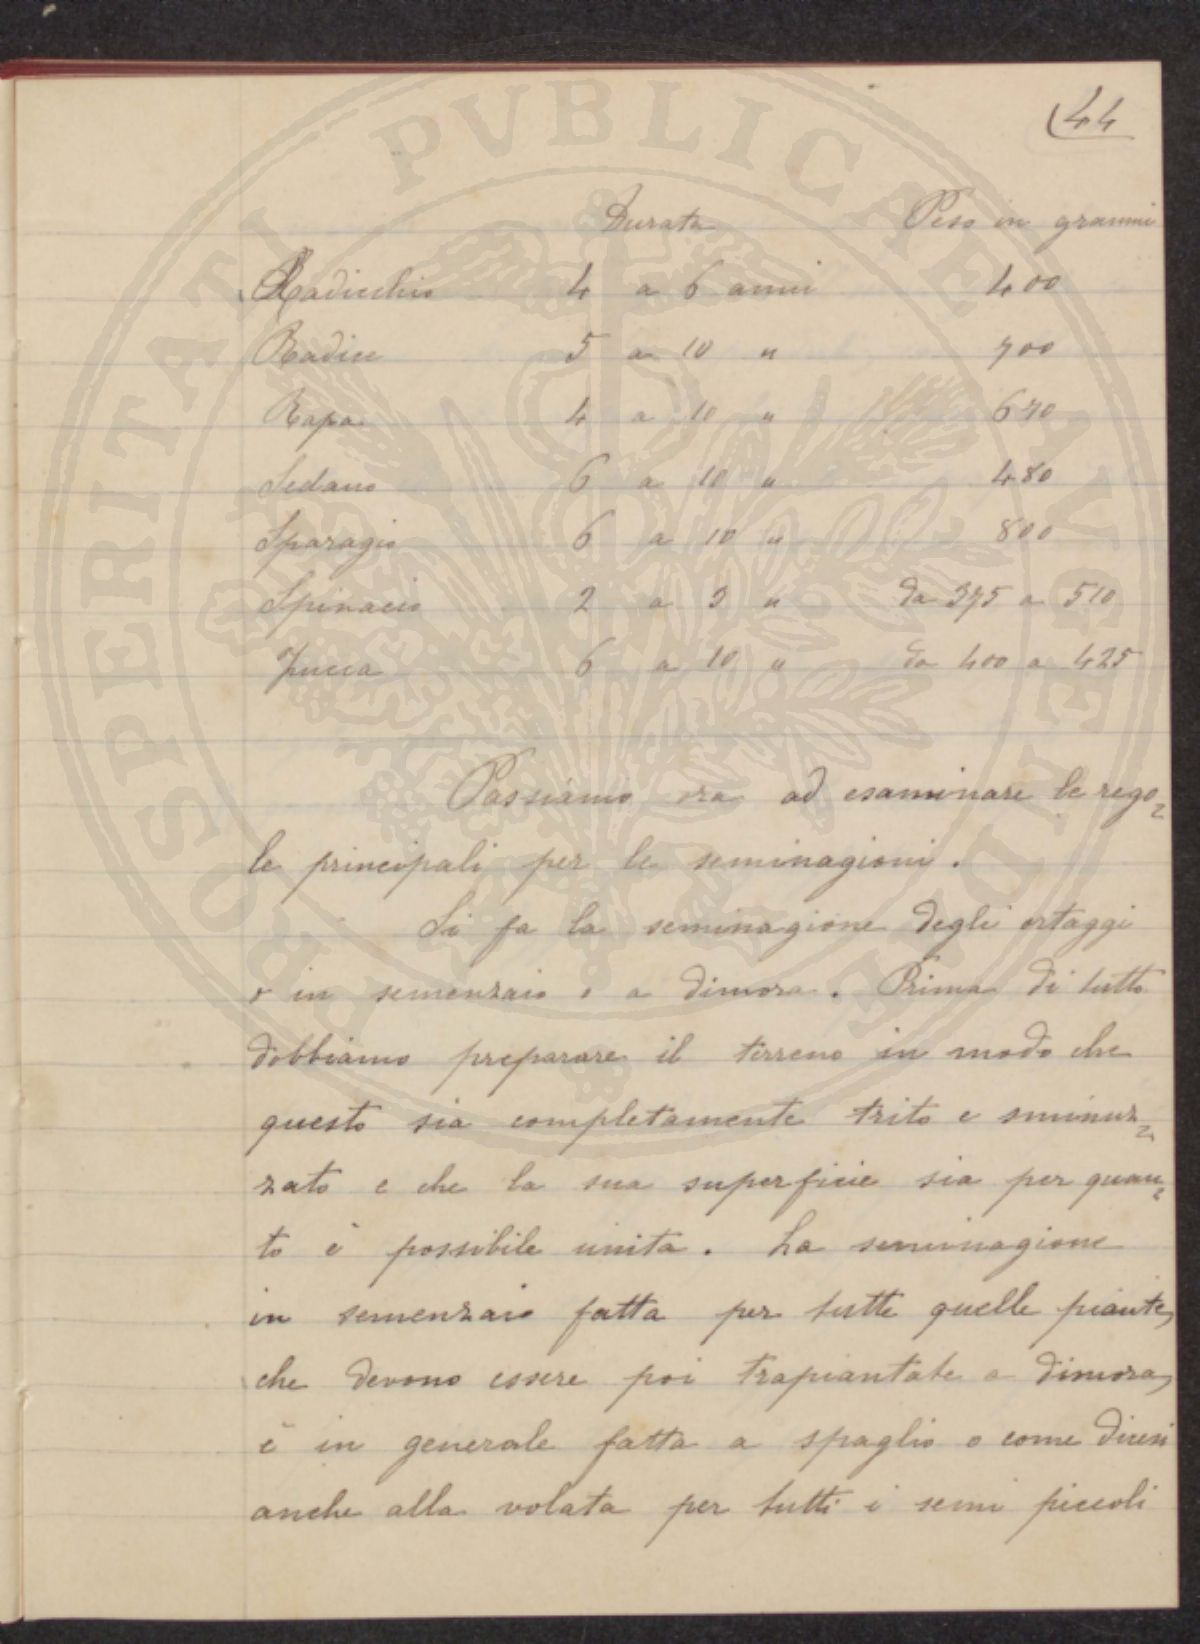 44
Durata Peso in grammi
Radicchio 4 a 6 anni 400
Radice 5 a 10 " 700
Rapa 4 a 10 " 670
Sedano 6 a 10 " 480
Sparagio 6 a 10 " 800
Spinacio 2 a 3 " da 375 a 510
Zucca 6 a 10 " da 400 a 425
Passiamo ora ad esaminare le rego=
le principali per le seminagioni.
Si fa la seminagione degli ortaggi
o in semenzaio o a dimora. Prima di tutto
dobbiamo preparare il terreno in modo che
questo sia completamente trito e sminuz=
zato e che la sua superficie sia per quan=
to è possibile unita. La seminagione
in semenzaio fatta per tutte quelle piante,
che devono essere poi trapiantate a dimora,
è in generale fatta a spaglio o come dicesi
anche alla volata per tutti i semi piccoli
PROSPERITATI PVBLICAE AVGENDAE